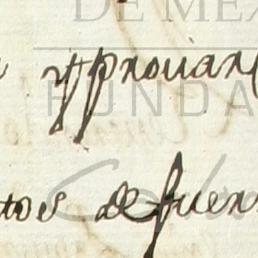 DE MÉX
y prouan
FUNDA
tos de fuen